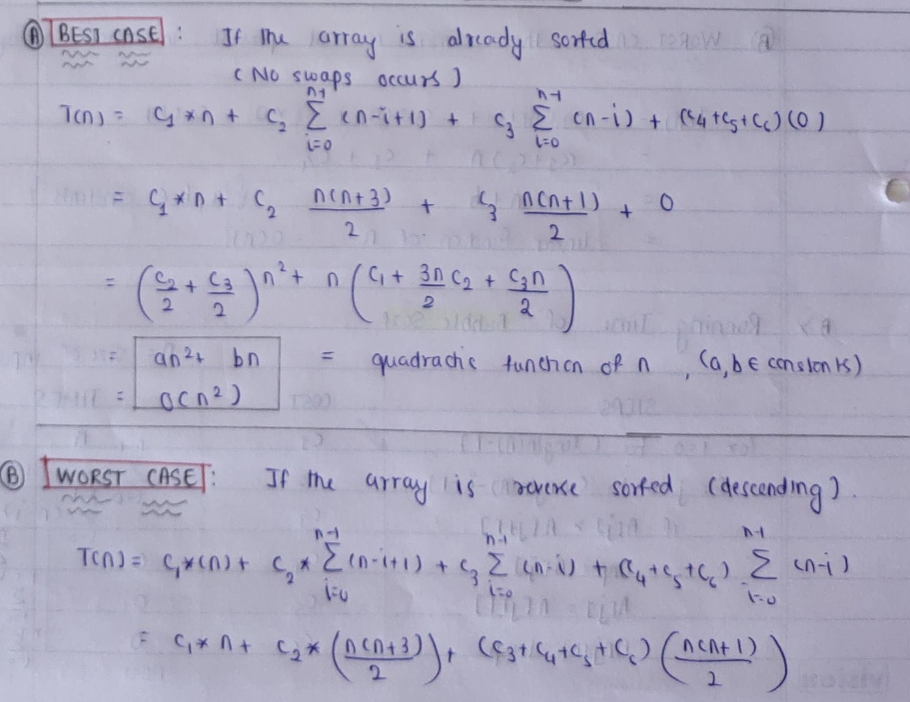 Ⓐ BEST CASE : If the array is already sorted
(No swaps occurs)
T(n) = C₁*n + C₂ Σ_{i=0}^{n-1} (n-i+1) + C₃ Σ_{i=0}^{n-1} (n-i) + (C₄+C₅+C₆)(0)
= C₁*n + C₂ n(n+3)/2 + C₃ n(n+1)/2 + 0
= (C₂/2 + C₃/2)n² + n(C₁ + 3n/2 C₂ + C₃n/2)
= an² + bn = quadractic function of n, (a,b ∈ constants)
= O(n²)
Ⓑ WORST CASE : If the array is reverse sorted (descending).
T(n) = C₁*(n) + C₂* Σ_{i=0}^{n-1} (n-i+1) + C₃ Σ_{i=0}^{n-1} (n-i) + (C₄+C₅+C₆) Σ_{i=0}^{n-1} (n-i)
= C₁*n + C₂*(n(n+3)/2) + (C₃+C₄+C₅+C₆)(n(n+1)/2)